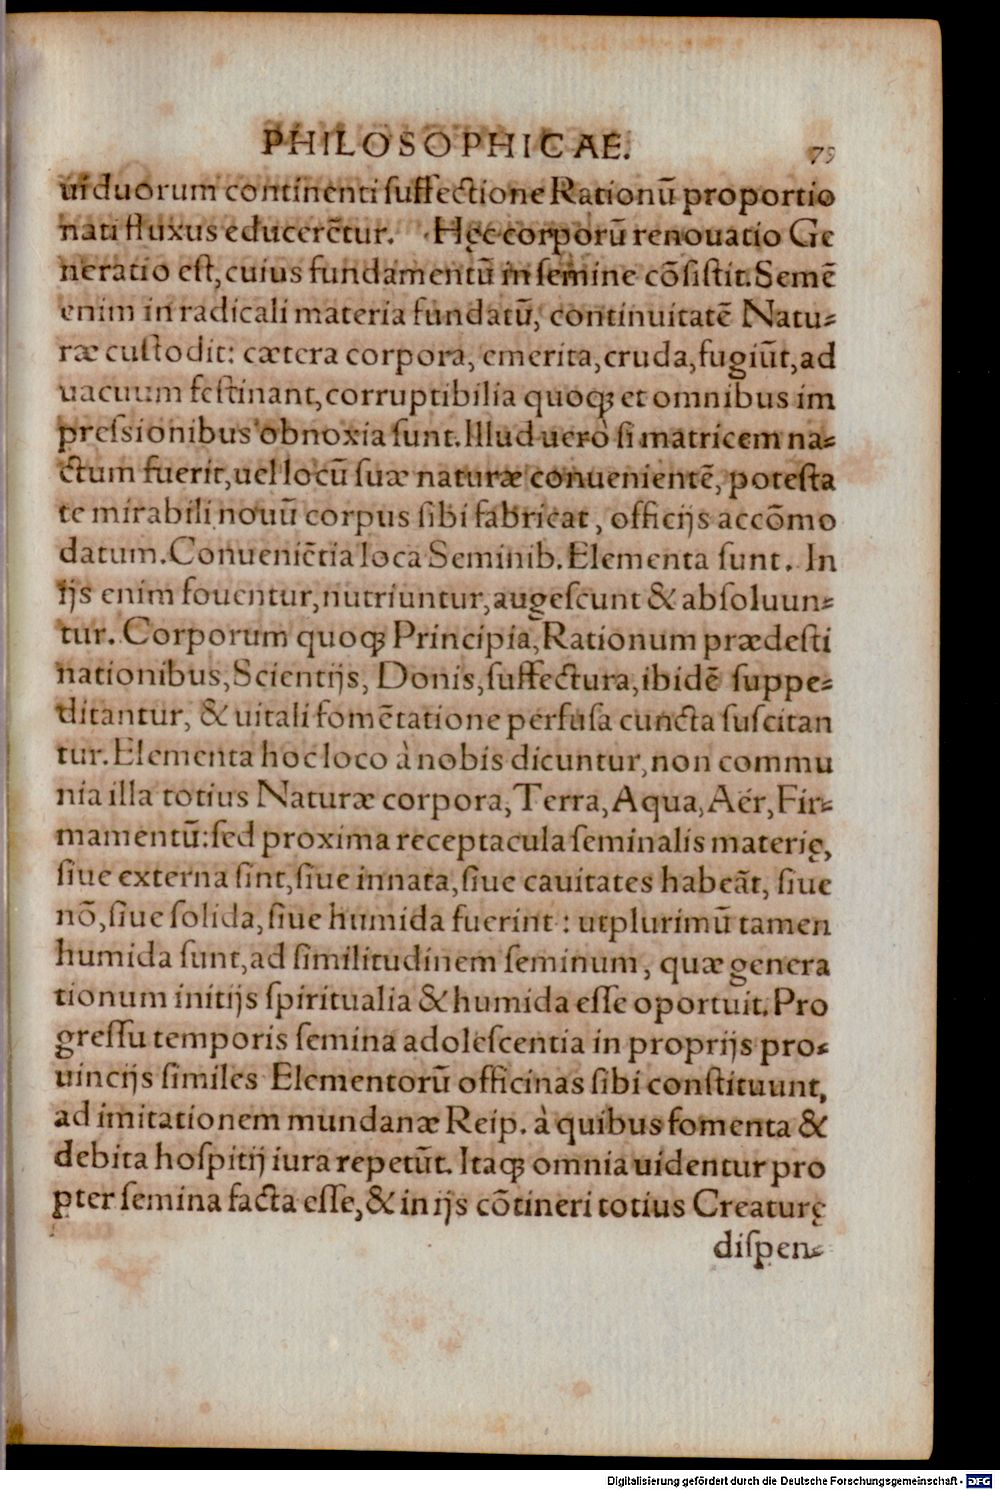 PHILOSOPHICAE. 79
ui duorum continenti suffectione Rationũ proportio
nati fluxus educerẽtur. Hęc corporũ renouatio Ge
neratio est, cuius fundamentũ in semine cõsistit. Semẽ
enim in radicali materia fundatũ, continuitatẽ Natu-
ræ custodit: cætera corpora, emerita, cruda, fugiũt, ad
uacuum festinant, corruptibilia quoq; et omnibus im
pressionibus obnoxia sunt. Illud uerò si matricem na-
ctum fuerit, uel locũ suæ naturæ conuenientẽ, potesta
te mirabili nouũ corpus sibi fabricat, officijs accõmo
datum. Conueniẽtia loca Seminib. Elementa sunt. In
ijs enim fouentur, nutriuntur, augescunt & absoluun-
tur. Corporum quoq; Principia, Rationum prædesti
nationibus, Scientijs, Donis, suffectura, ibidẽ suppe-
ditantur, & uitali fomẽtatione perfusa cuncta suscitan
tur. Elementa hoc loco à nobis dicuntur, non commu
nia illa totius Naturæ corpora, Terra, Aqua, Aër, Fir-
mamentũ: sed proxima receptacula seminalis materię,
siue externa sint, siue innata, siue cauitates habeãt, siue
nõ, siue solida, siue humida fuerint: utplurimũ tamen
humida sunt, ad similitudinem seminum, quæ genera
tionum initijs spiritualia & humida esse oportuit. Pro
gressu temporis semina adolescentia in proprijs pro-
uincijs similes Elementorũ officinas sibi constituunt,
ad imitationem mundanæ Reip. à quibus fomenta &
debita hospitij iura repetũt. Itaq; omnia uidentur pro
pter semina facta esse, & in ijs cõtineri totius Creaturę
dispen-
Digitalisierung gefördert durch die Deutsche Forschungsgemeinschaft - DFG